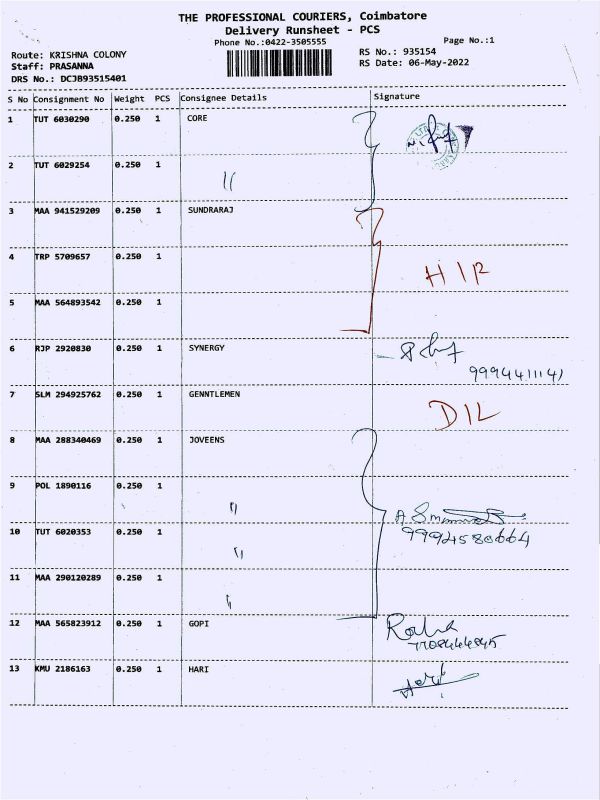 THE PROFESSIONAL COURIERS, Coimbatore
Delivery Runsheet - PCS
Phone No.:0422-3505555
Page No.:1
Route: KRISHNA COLONY
RS No.: 935154
Staff: PRASANNA
RS Date: 06-May-2022
DRS No.: DCJB93515401
S No Consignment No Weight PCS Consignee Details Signature
1 TUT 6030290 0.250 1 CORE
2 TUT 6029254 0.250 1 "
3 MAA 941529209 0.250 1 SUNDRARAJ
4 TRP 5709657 0.250 1
5 MAA 564893542 0.250 1
6 RJP 2920830 0.250 1 SYNERGY
9994411141
7 SLM 294925762 0.250 1 GENNTLEMEN D/L
8 MAA 288340469 0.250 1 JOVEENS
9 POL 1890116 0.250 1 "
10 TUT 6020353 0.250 1 "
9994580664
11 MAA 290120289 0.250 1 "
12 MAA 565823912 0.250 1 GOPI
13 KMU 2186163 0.250 1 HARI